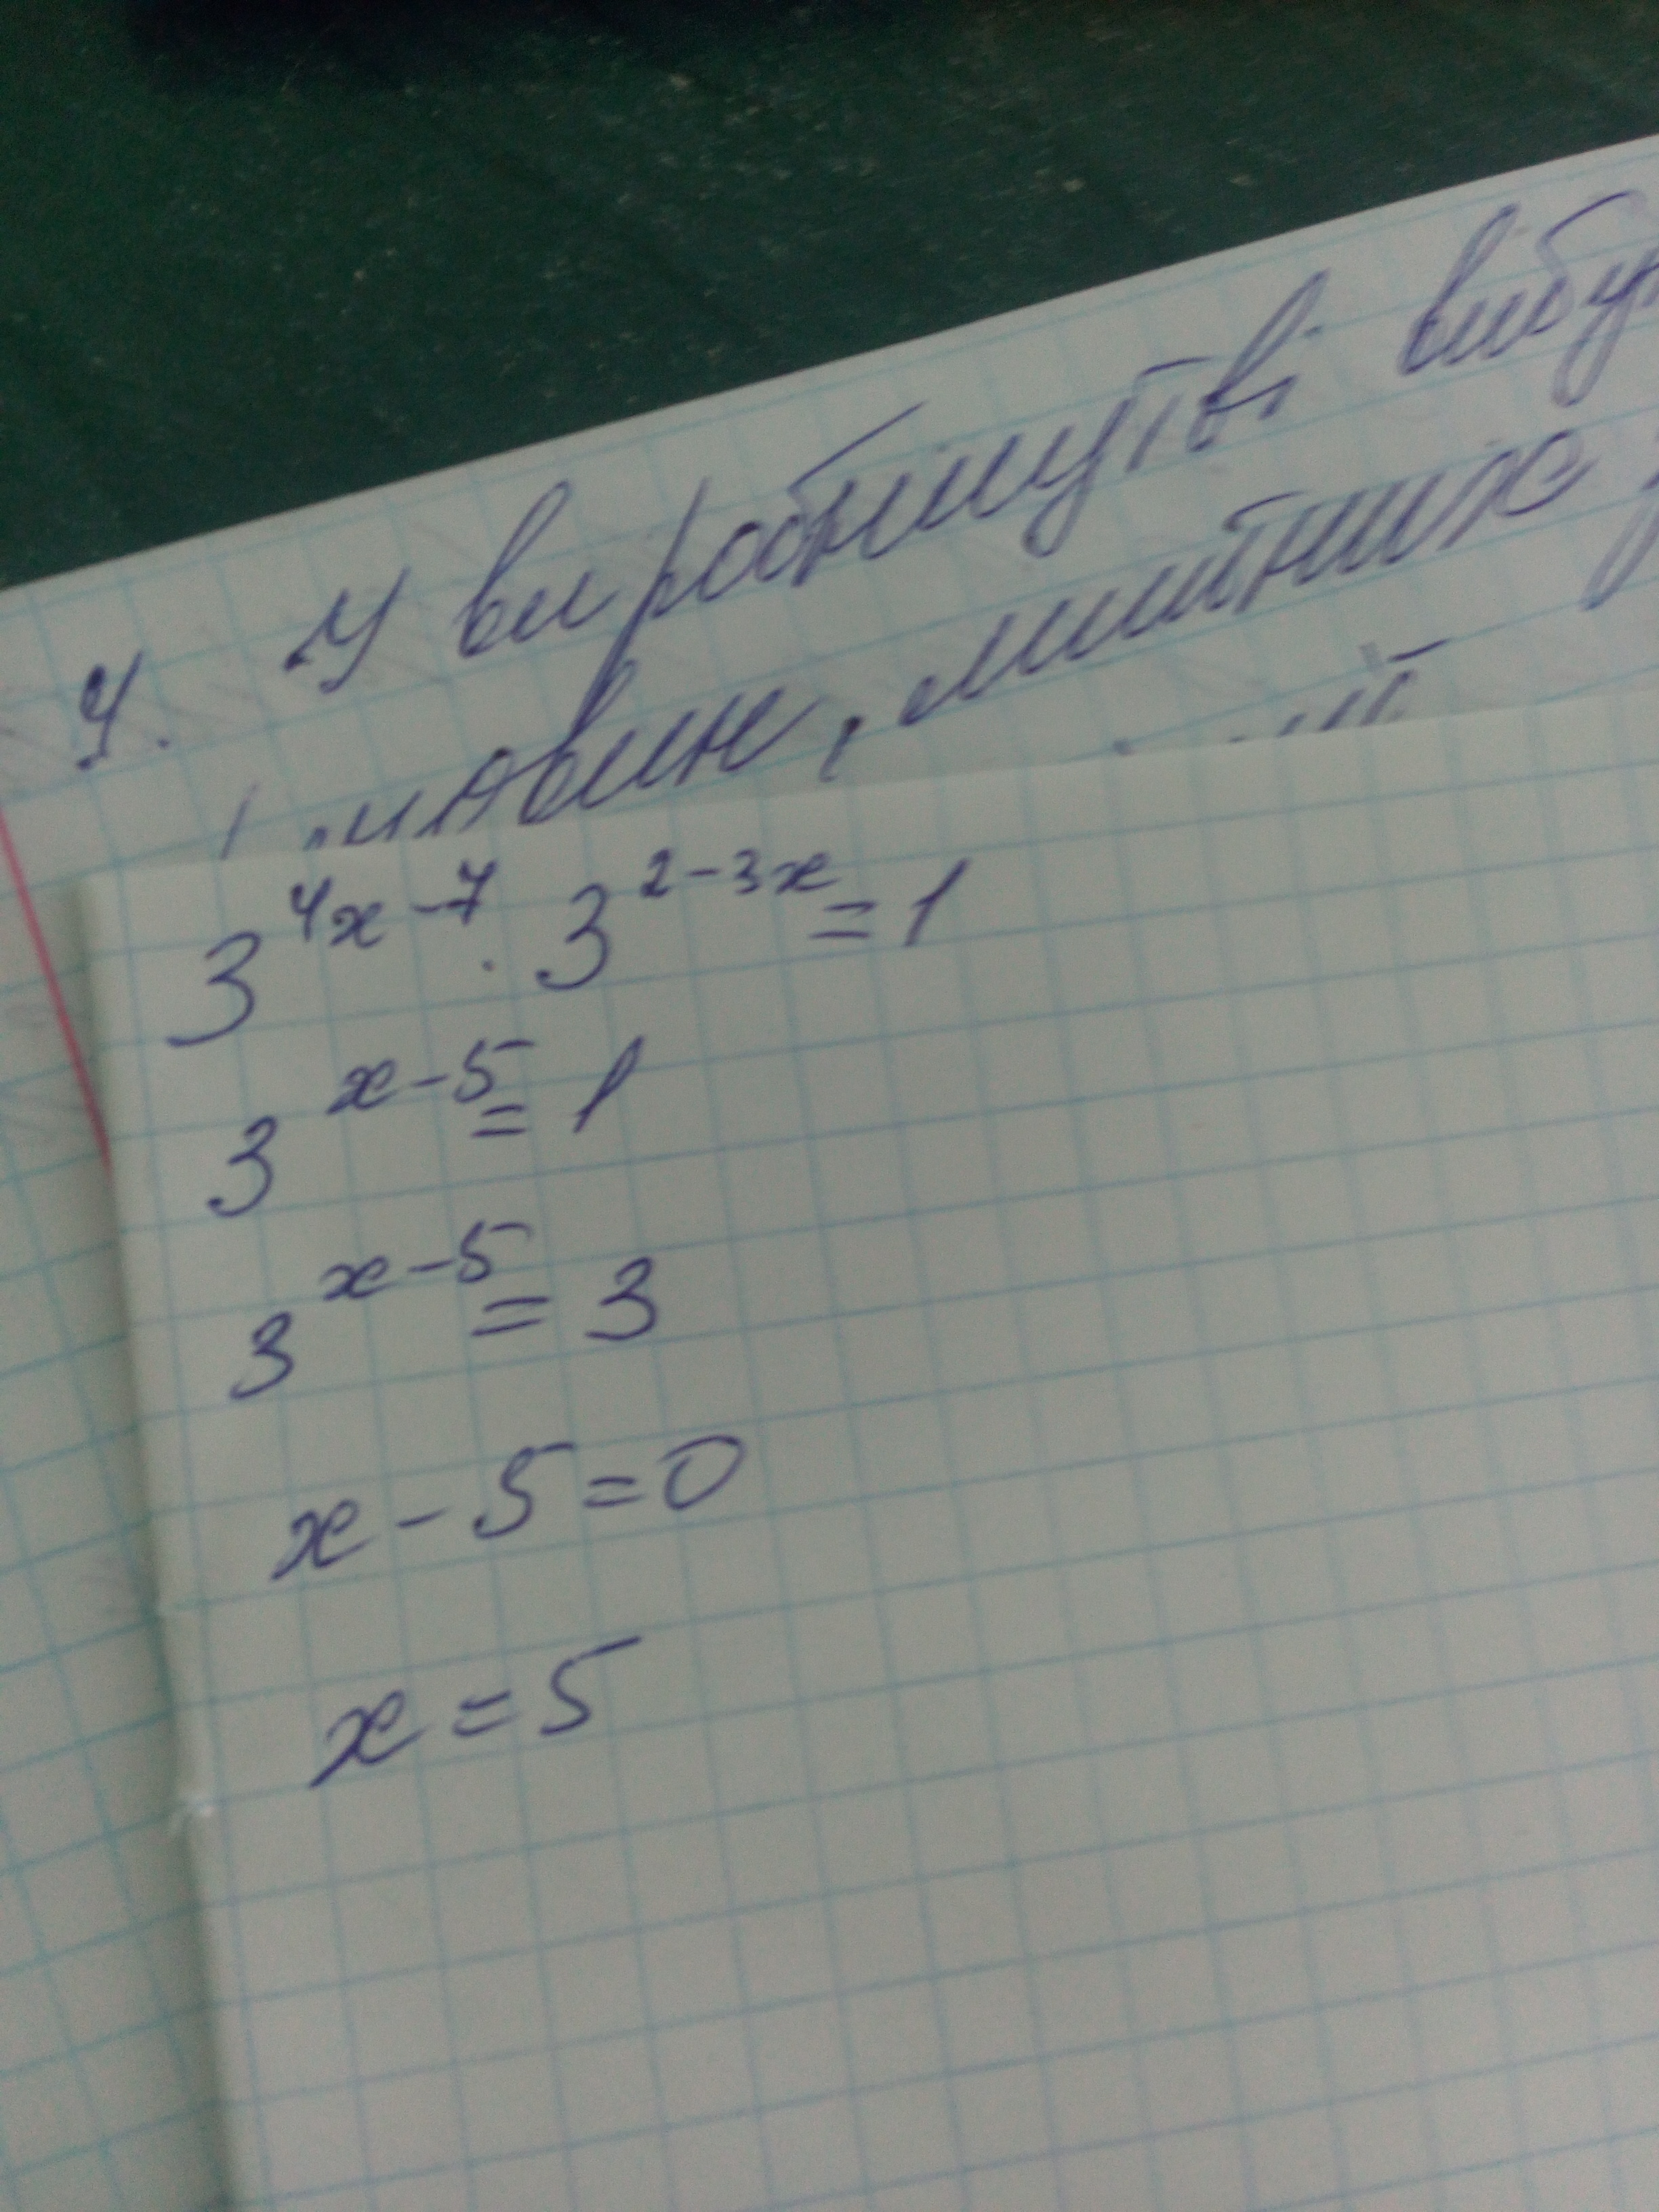 4. У виробництві вибу
, митних
3^{4x-7} · 3^{2-3x} = 1
3^{x-5} = 1
3^{x-5} = 3
x - 5 = 0
x = 5